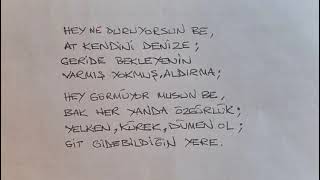 HEY NE DURUYORSUN BE,
AT KENDİNİ DENİZE;
GERİDE BEKLEYENİN
VARMIŞ YOKMUŞ, ALDIRMA;
HEY GÖRMÜYOR MUSUN BE,
BAK HER YANDA ÖZGÜRLÜK;
YELKEN, KÜREK, DÜMEN OL;
GİT GİDEBİLDİĞİN YERE.